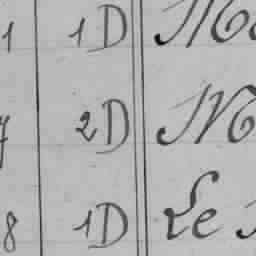 1 1D M
7 2D M
8 1D Le